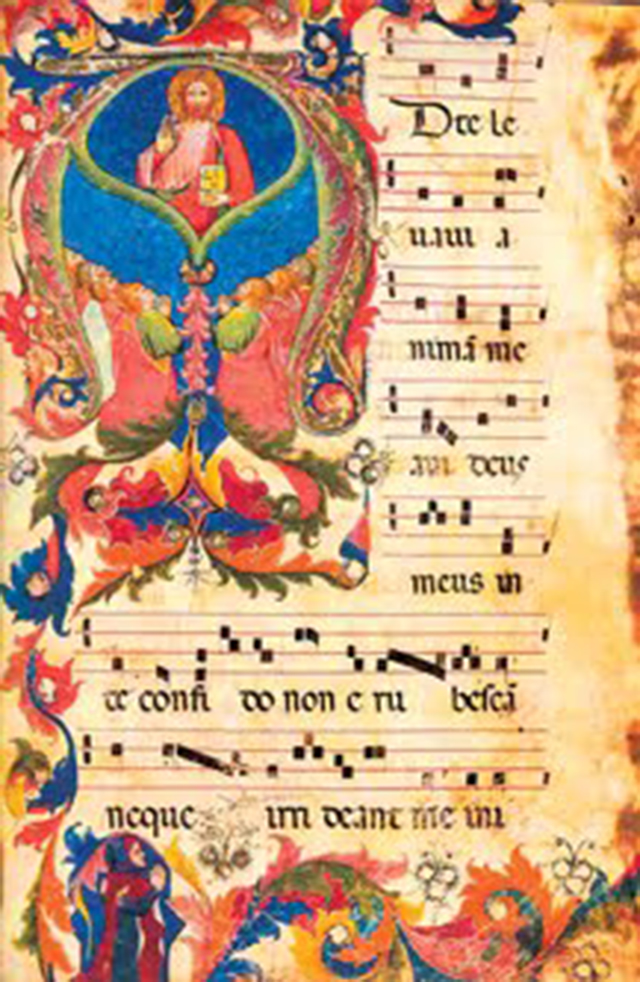 Dte le
uaui a
nimā me
am deus
meus in
te confi do non e ru bescā
neque irri deant me ini